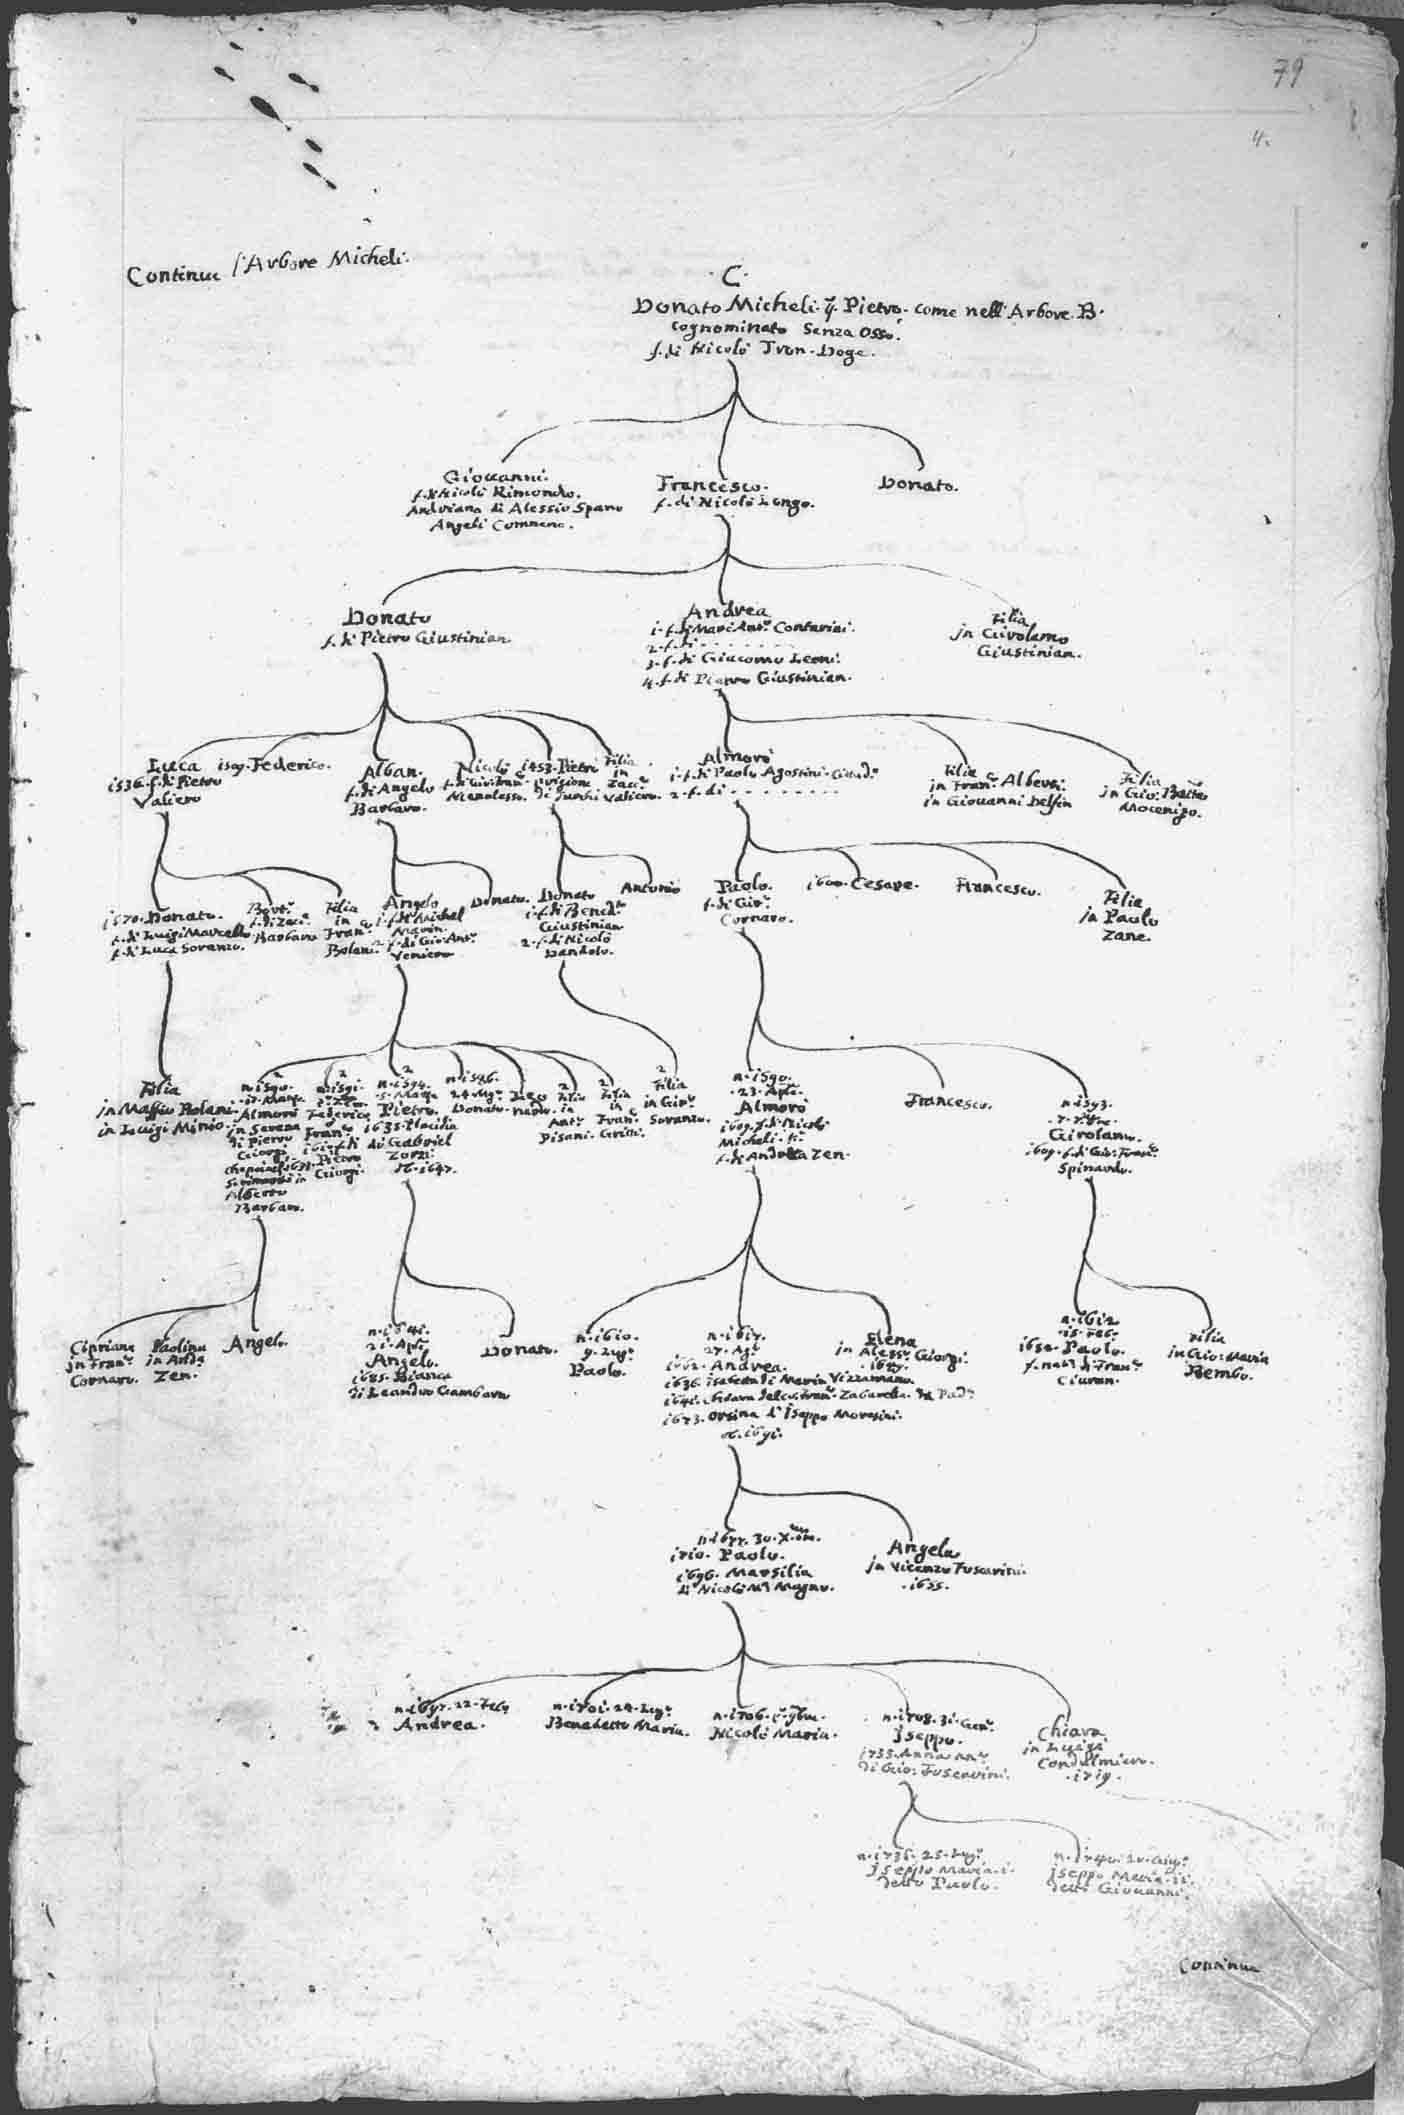 79
4.
Continua l'Arbore Micheli.
C.
Donato Micheli. q. Pietro. come nell'Arbore. B.
cognominato Senza Osso.
f. di Nicolò Tron. Doge.
Giovanni.
f. di Nicolò Rimondo.
Andriana di Alessio Spano
Angeli Comneno.
Francesco.
f. di Nicolò Longo.
Donato.
Donato
f. di Pietro Giustinian
Andrea
1. f. di Marc'Antº Contarini.
2. f. di . . . . . . .
3. f. di Giacomo Leoni.
4. f. di Pietro Giustinian.
Filia
in Girolamo
Giustinian.
Luca
1536. f. di Pietro
Valiero
1509. Federico.
Alban.
f. di Angelo
Barbaro.
Nicolò
Memolesso.
Pietro
Filia
in
Zacª
Valiero.
Almorò
1. f. di Paolo Agostini. Cittadº
2. f. di . . . . . . . .
Filia
in Francº Alberti.
in Giovanni Delfin
Filia
in Gio: Battª
Mocenigo.
1570. Donato.
f. di Luigi Marcello
f. di Luca Soranzo.
Bortº
f. di Zacª
Barbaro
Filia
in
Francº
Bolani.
Angelo
1. f. di Michel
Marin.
2. f. di Gio: Antº
Veniero
Donato.
Donato
1. f. di Benedtº
Giustinian
2. f. di Nicolò
Dandolo.
Antonio
Paolo.
f. di Girº
Cornaro.
1600. Cesare.
Francesco.
Filia
in Paolo
Zane.
Filia
in Maffio Bolani.
in Luigi Minio.
n. 1590.
Almorò
in Serena
di Piero
Giorgi
Alberto
Barbaro.
n. 1591.
Federico
Pietro
Giorgi.
2
n. 1594.
Pietro.
1635. Placidia
di Gabriel
Zorzi.
1647.
n. 1596.
Donato.
2
Filia
in
Antº
Pisani.
2
Filia
in
Francº
Gritti.
2
Filia
in Girº
Soranzo.
n. 1590.
23. Aple.
Almorò
1609. f. di Nicolò
Micheli.
f. di Andrea Zen.
Francesco.
n. 1593.
Girolamo.
1609. f. di Gio: Francº
Spinardo.
Cipriana
in Francº
Cornaro.
Paolina
in Andª
Zen.
Angelo.
n. 1641.
21. Aple
Angelo.
1685. Bianca
di Leandro Gambara
Donato.
n. 1610.
9. Lugº
Paolo.
n. 1617.
27. Agº
1662. Andrea.
1636. Isabetta di Marin Vizzamano.
1641. Chiara del Co: Francº Zabarella. da Padª
1673. Orsina d'Iseppo Moresini.
1691.
Elena
in Alessº Giorgi.
n. 1612
15. Feb.
1630. Paolo.
f. natl di Francº
Ciuran.
Filia
in Gio: Maria
Bembo.
n. 1677. 30. Xmbre.
1710. Paolo.
1696. Marsilia
di Nicolò Mª Magno.
Angela
in Vicenzo Foscarini.
1655.
n. 1697. 22.
Andrea.
n. 1701. 24. Lugº
Benedetto Maria.
n. 1706. 9bre.
Nicolò Maria.
n. 1708. 31. Genº
Iseppo.
1733. Anna Mª
di Gio: Foscarini.
Chiara
in Luigi
Condulmiero.
1719.
n. 1735. 25. Lugº
Iseppo Maria. 1.
detto Paolo.
n. 1740. 20. Giugº
Iseppo Maria. 2.
detto Giovanni.
Continua